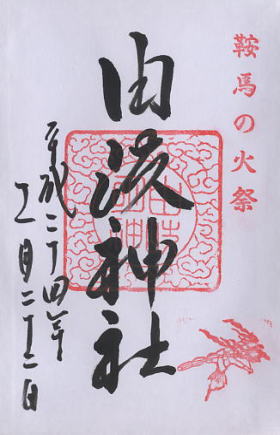 鞍馬の火祭
由岐神社
平成二十四年
十一月二十二日